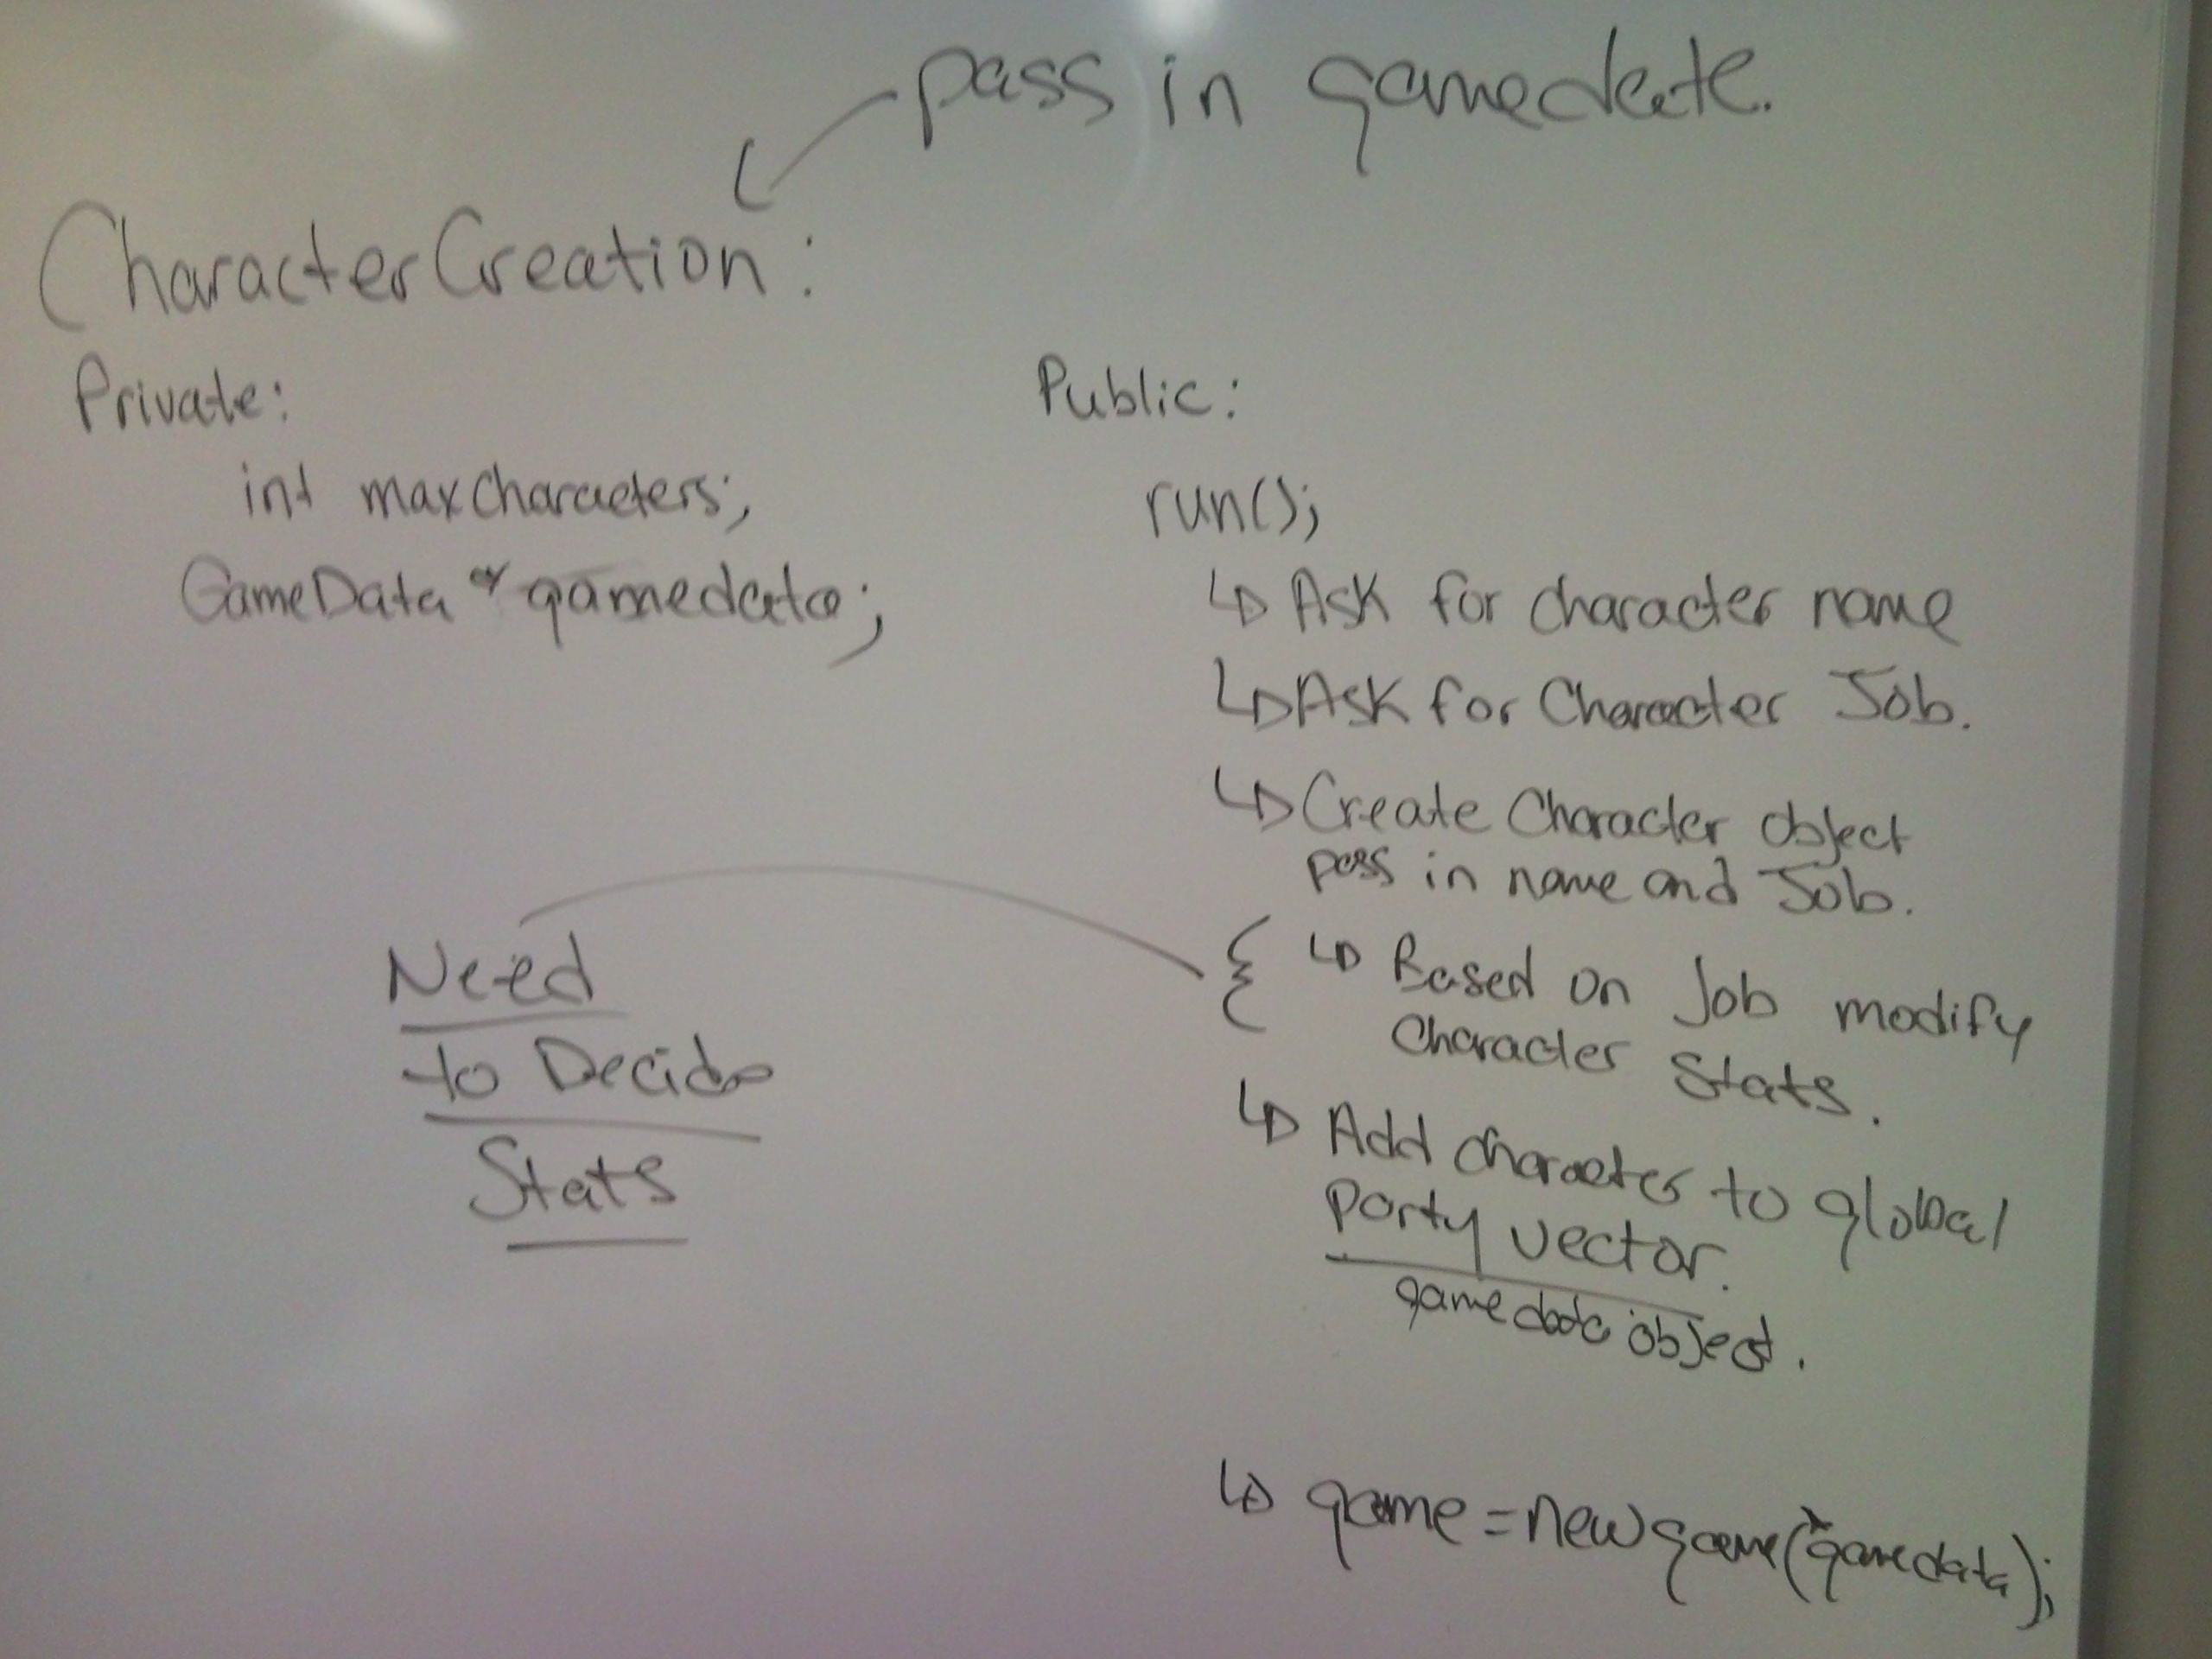 pass in gamedata.
CharacterCreation:
Private:
int maxcharacters;
GameData *gamedata;
Need
to Decide
Stats
Public:
run();
↳ Ask for character name
↳ Ask for Character Job.
↳ Create Character object
pass in name and Job.
{ ↳ Based on Job modify
Character Stats.
↳ Add character to global
party vector.
gamedata object.
↳ game = new game(*gamedata);